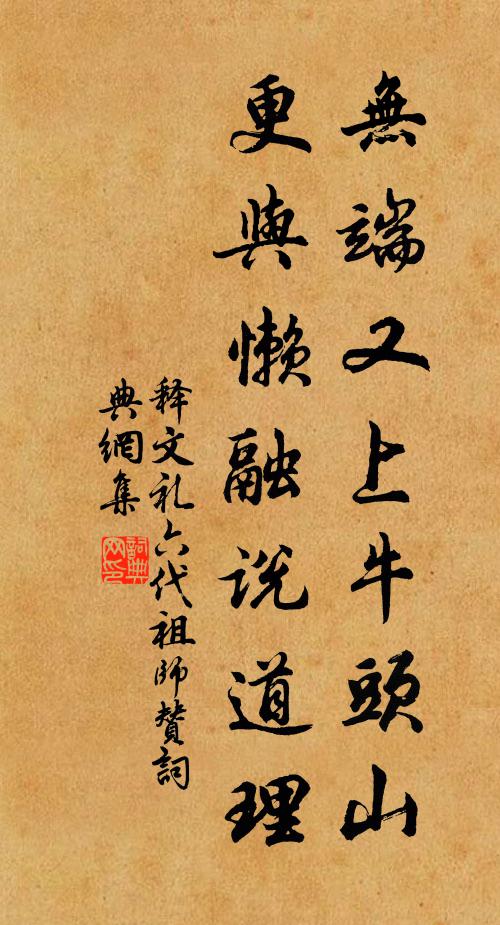 無端又上牛頭山
更與懶融説道理
释文礼六代祖師賛詞
典網集
詞典
网印